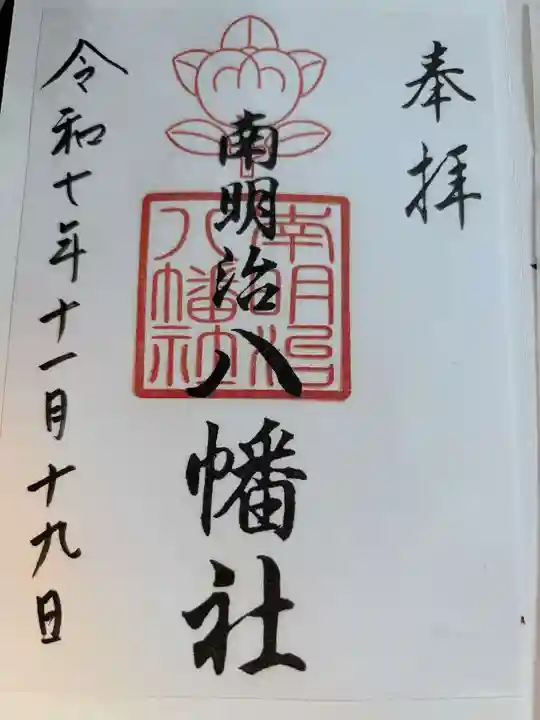 奉拝
南明治八幡社
南明治
八幡社
令和七年十一月十九日